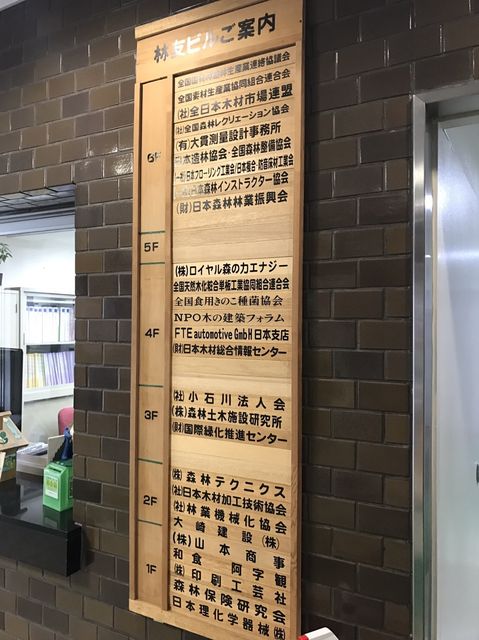 林友ビルご案内
6F
全国素材生産業協同組合連合会
(社)全日本木材市場連盟
(社)全国森林レクリエーション協会
(有)大貫測量設計事務所
日本造林協会・全国森林整備協会
(一社)日本フローリング工業会/日本複合・防音床材工業会
日本森林インストラクター協会
(財)日本森林林業振興会
5F
4F
(株)ロイヤル森の力エナジー
全国天然木化粧合単板工業協同組合連合会
全国食用きのこ種菌協会
NPO木の建築フォラム
FTE automotive GmbH 日本支店
(財)日本木材総合情報センター
3F
(社)小石川法人会
(株)森林土木施設研究所
(財)国際緑化推進センター
2F
(株)森林テクニクス
(社)日本木材加工技術協会
(社)林業機械化協会
大崎建設(株)
1F
(株)山本商事
和食 阿字観
(株)印刷工芸社
森林保険研究会
日本理化学器械(株)